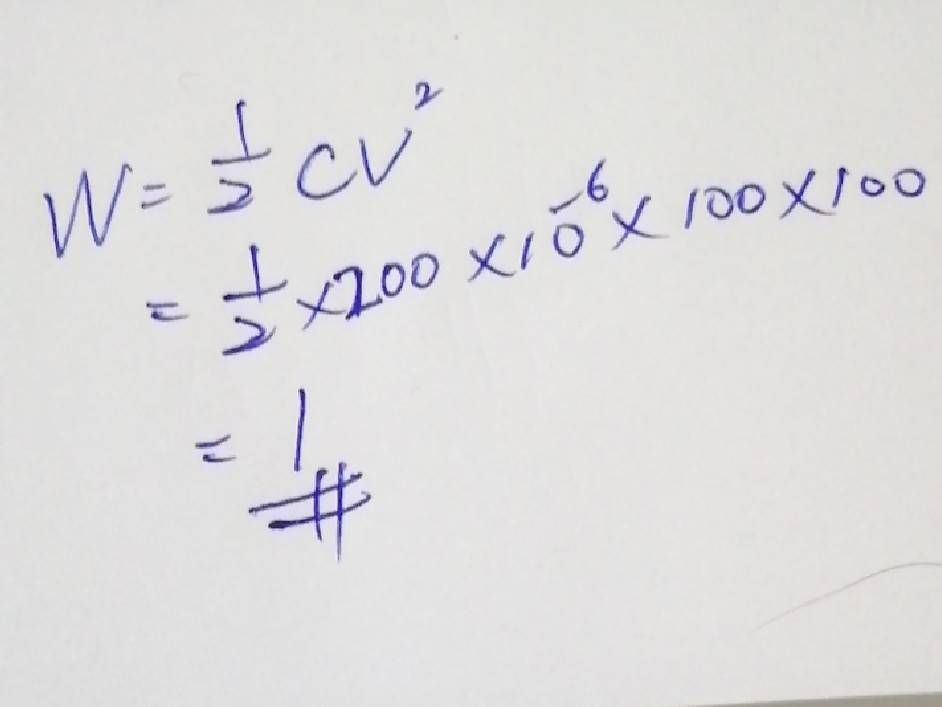 W = 1/2 CV²
= 1/2 × 200 × 10⁻⁶ × 100 × 100
= 1